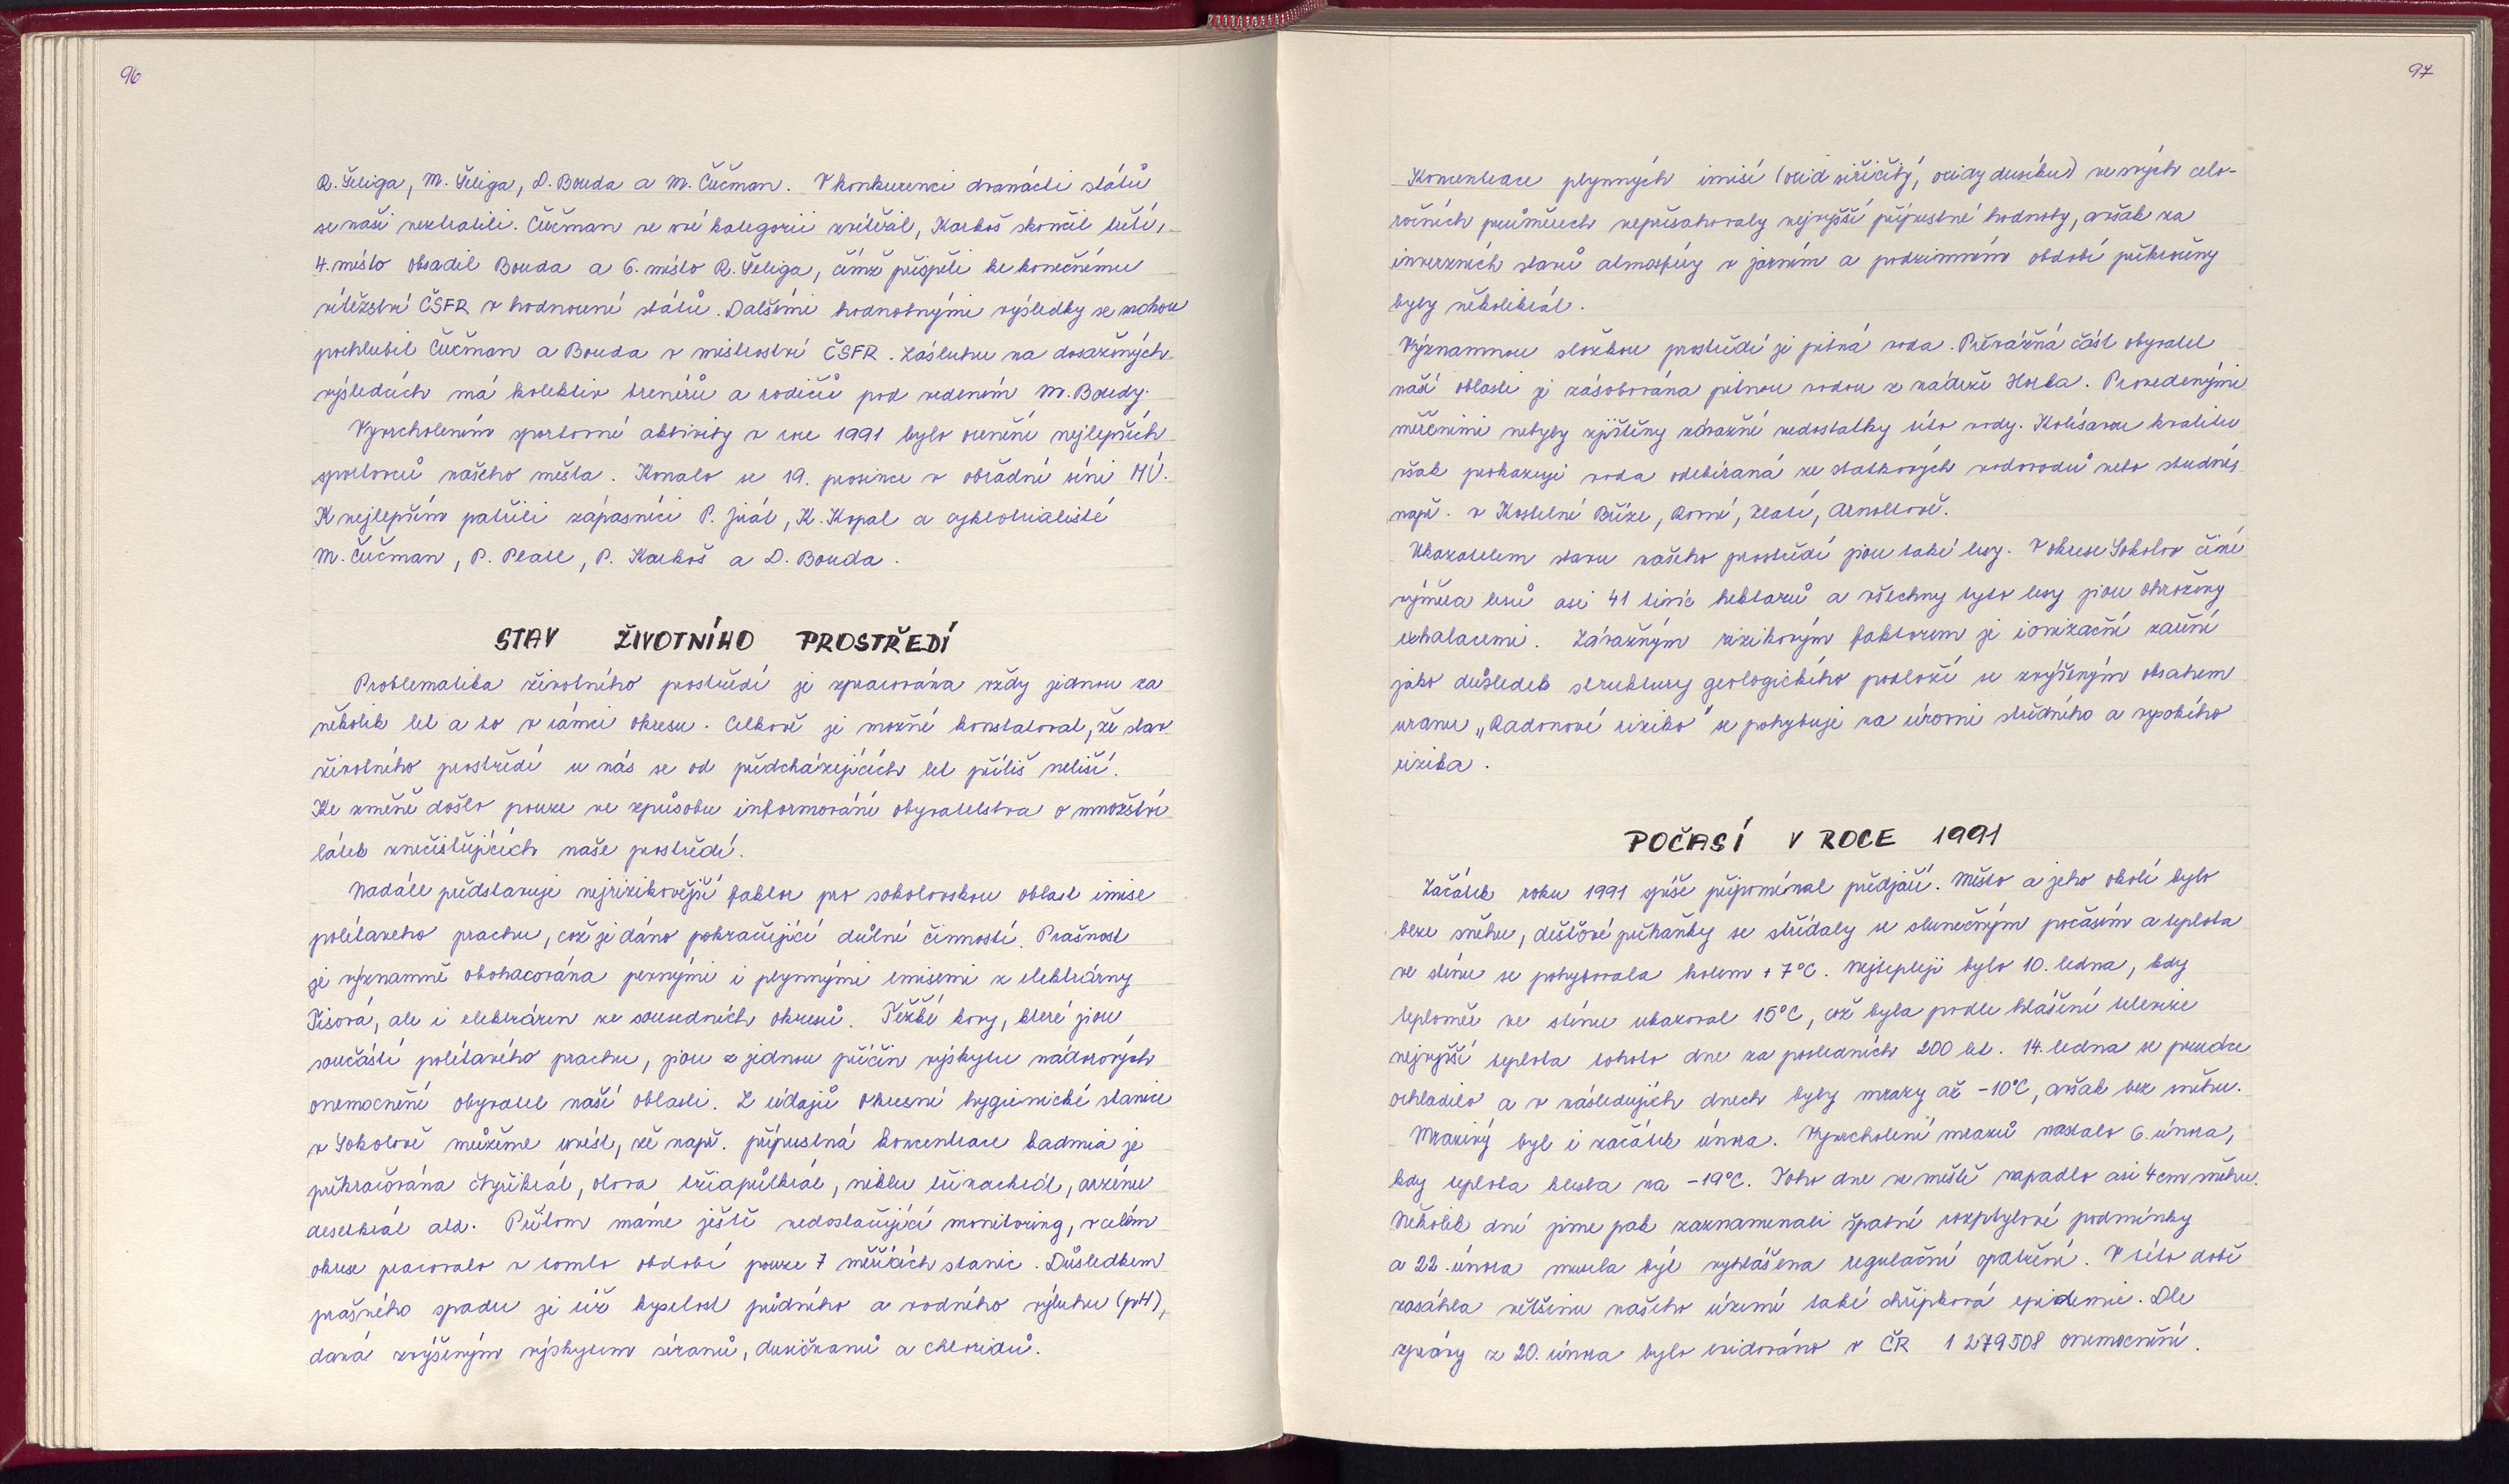 96
R. Šeliga, M. Šeliga, D. Bouda a M. Čučman. V konkurenci dvanácti států
se naši neztratili. Čučman ve své kategorii zvítězil, Karkoš skončil třetí,
4. místo obsadil Bouda a 6. místo R. Šeliga, čímž přispěli ke konečnému
vítězství ČSFR v hodnocení států. Dalšími hodnotnými výsledky se mohou
pochlubit Čučman a Bouda v mistrovství ČSFR. Zásluhu na dosažených
výsledcích má kolektiv trenérů a rodičů pod vedením M. Boudy.
Vyvrcholením sportovní aktivity v roce 1991 bylo ocenění nejlepších
sportovců našeho města. Konalo se 19. prosince v obřadní síni MÚ.
K nejlepším patřili zápasníci P. Jirát, K. Kopal a cyklotrialisté
M. Čučman, P. Pearl, P. Karkoš a D. Bouda.
STAV ŽIVOTNÍHO PROSTŘEDÍ
Problematika životního prostředí je zpracována vždy jednou za
několik let a to v rámci okresu. Celkově je možné konstatovat, že stav
životního prostředí u nás se od předcházejících let příliš neliší.
Ke změně došlo pouze ve způsobu informování obyvatelstva o množství
látek znečisťujících naše prostředí.
Nadále představuje nejrizikovější faktor pro sokolovskou oblast imise
polétavého prachu, což je dáno pokračující důlní činností. Prašnost
je významně obohacována pevnými i plynnými emisemi z elektrárny
Tisová, ale i elektráren ze sousedních okresů. Těžké kovy, které jsou
součástí polétavého prachu, jsou z jednou příčin výskytu nádorových
onemocnění obyvatel naší oblasti. Z údajů Okresní hygienické stanice
v Sokolově můžeme uvést, že např. přípustná koncentrace kadmia je
překračována čtyřikrát, olova třiapůlkrát, niklu třináctkrát, arzénu
desetkrát atd. Přitom máme ještě nedostačující monitoring, v celém
okrese pracovalo v tomto období pouze 7 měřících stanic. Důsledkem
prašného spadu je též kyselost půdního a vodního výluhu (pH),
daná zvýšeným výskytem síranů, dusičnanů a chloridů.
97
Koncentrace plynných imisí (oxid siřičitý, oxidy dusíku) ve svých celo-
ročních průměrech nepřesahovaly nejvyšší přípustné hodnoty, avšak za
inverzních stavů atmosféry v jarním a podzimním období překročeny
byly několikrát.
Významnou složkou prostředí je pitná voda. Převážná část obyvatel
naší oblasti je zásobována pitnou vodou z nádrže Horka. Provedenými
měřeními nebyly zjištěny závažné nedostatky této vody. Kolísavou kvalitu
však prokazuje voda odebíraná ze statkových vodovodů nebo studní,
např. v Kostelní Bříze, Rovné, Zlaté, Arnoltově.
Ukazatelem stavu našeho prostředí jsou také lesy. V okrese Sokolov činí
výměra lesů asi 41 tisíc hektarů a všechny tyto lesy jsou ohroženy
exhalacemi. Závažným rizikovým faktorem je ionizační záření
jako důsledek struktury geologického podloží se zvýšeným obsahem
uranu „Radonové riziko" se pohybuje na úrovni středního a vysokého
rizika.
POČASÍ V ROCE 1991
Začátek roku 1991 spíše připomínal předjaří. Město a jeho okolí bylo
beze sněhu, dešťové přeháňky se střídaly se slunečným počasím a teplota
ve stínu se pohybovala kolem +7°C. Nejtepleji bylo 10. ledna, kdy
teploměr ve stínu ukazoval 15°C, což byla podle hlášení televize
nejvyšší teplota tohoto dne za posledních 200 let. 14. ledna se prudce
ochladilo a v následujích dnech byly mrazy až -10°C, avšak bez sněhu.
Mrazivý byl i začátek února. Vyvrcholení mrazů nastalo 6. února,
kdy teplota klesla na -19°C. Toho dne ve městě napadlo asi 4 cm sněhu.
Několik dní jsme pak zaznamenali špatné rozptylové podmínky
a 22. února musela být vyhlášena regulační opatření. V této době
zasáhla většinu našeho území také chřipková epidemie. Dle
zprávy z 20. února bylo evidováno v ČR 1 279508 onemocnění.